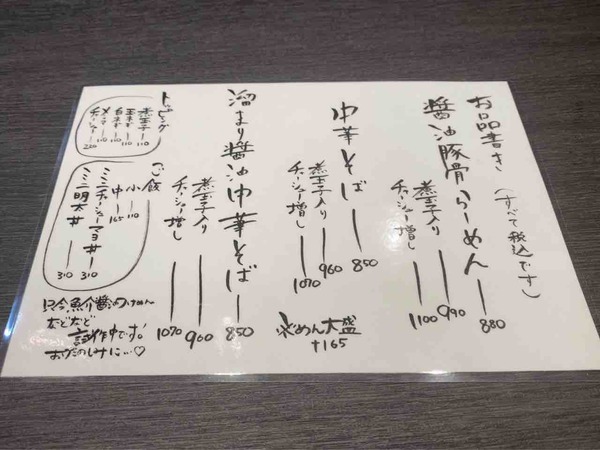 お品書き（すべて税込です）
醤油豚骨らーめん ― 880
煮玉子入り ― 990
チャーシュー増し ― 1100
中華そば ― 850
煮玉子入り ― 960
チャーシュー増し ― 1070
めん大盛
+165
溜まり醤油中華そば ― 850
煮玉子入り ― 960
チャーシュー増し ― 1070
トッピング
煮玉子 ― 110
玉ねぎ ― 110
白ネギ ― 110
メンマ ― 110
チャーシュー ― 220
ご飯
小 ― 110
中 ― 165
ミニチャーシューマヨ丼 ― 310
ミニ明太丼 ― 310
只今、魚介醬のつけめん
などなど
試作中です!
おたのしみに…♡